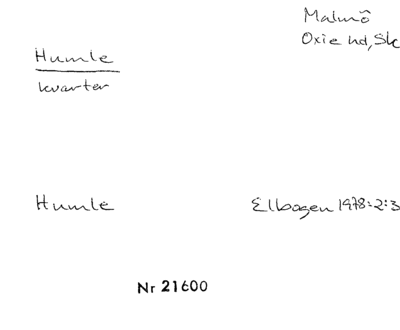 Malmö
Oxie hd, Sk
Humle
kvarter
Humle
Elbogen 1978:2:3
Nr 21600